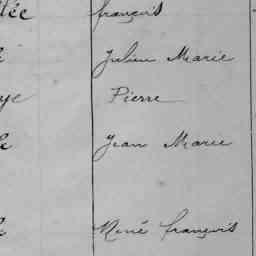 lée françois
Julien Marie
ye Pierre
Jean Marie
René françois